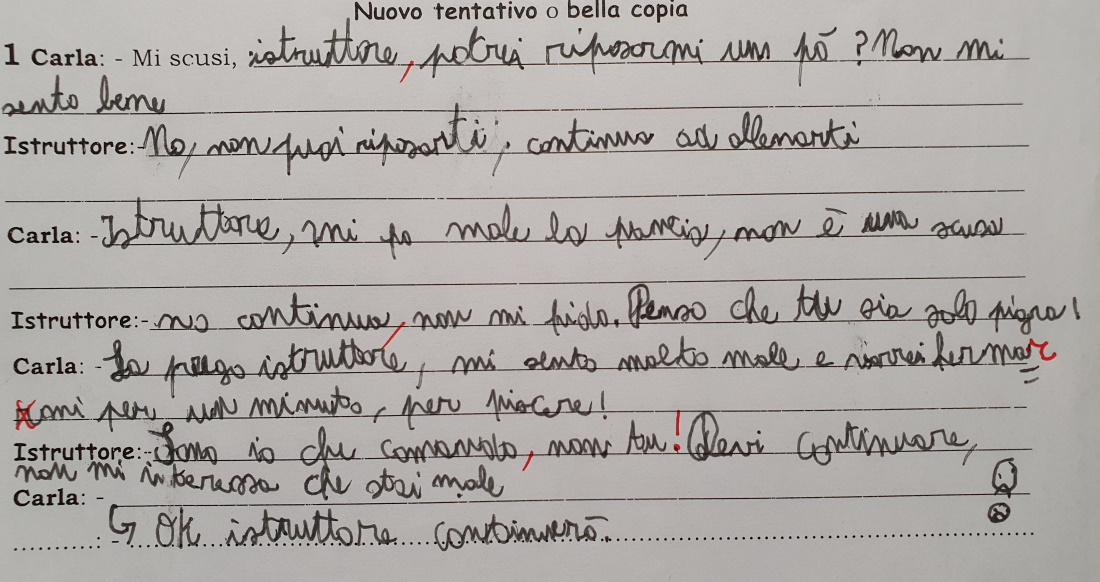 Nuovo tentativo o bella copia
1 Carla: - Mi scusi, istruttore, potrei riposarmi un pō ? Non mi
sento bene
Istruttore:- No, non puoi riposarti, continua ad allenarti
Carla: - Istruttore, mi fa male la pancia, non ē una scusa
Istruttore:- no continua, non mi fido. Penso che tu sia solo pigra!
Carla: - La prego istruttore, mi sento molto male e vorrei fermar
mi per un minuto, per piacere!
Istruttore:- Sono io che comando, non tu! Devi continuare,
non mi interessa che stai male
Carla: -
..........: - Ok istruttore continuerō.